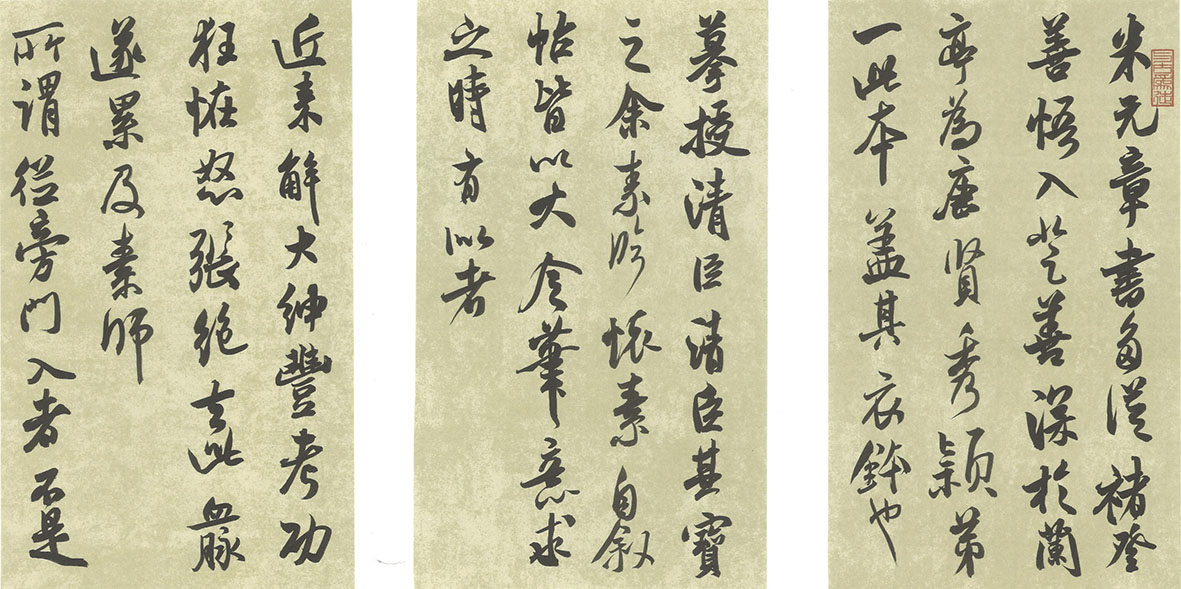 米元章書多從褚登
善悟入登善深於蘭
亭為唐賢秀穎第
一此本蓋其衣鉢也
摹授清臣清臣其寶
之余素臨懷素自叙
帖皆以大令筆意求
之時有似者
近来解大紳豐考功
狂怪怒張絕去此血脈
遂累及素師
所謂從旁門入者不是